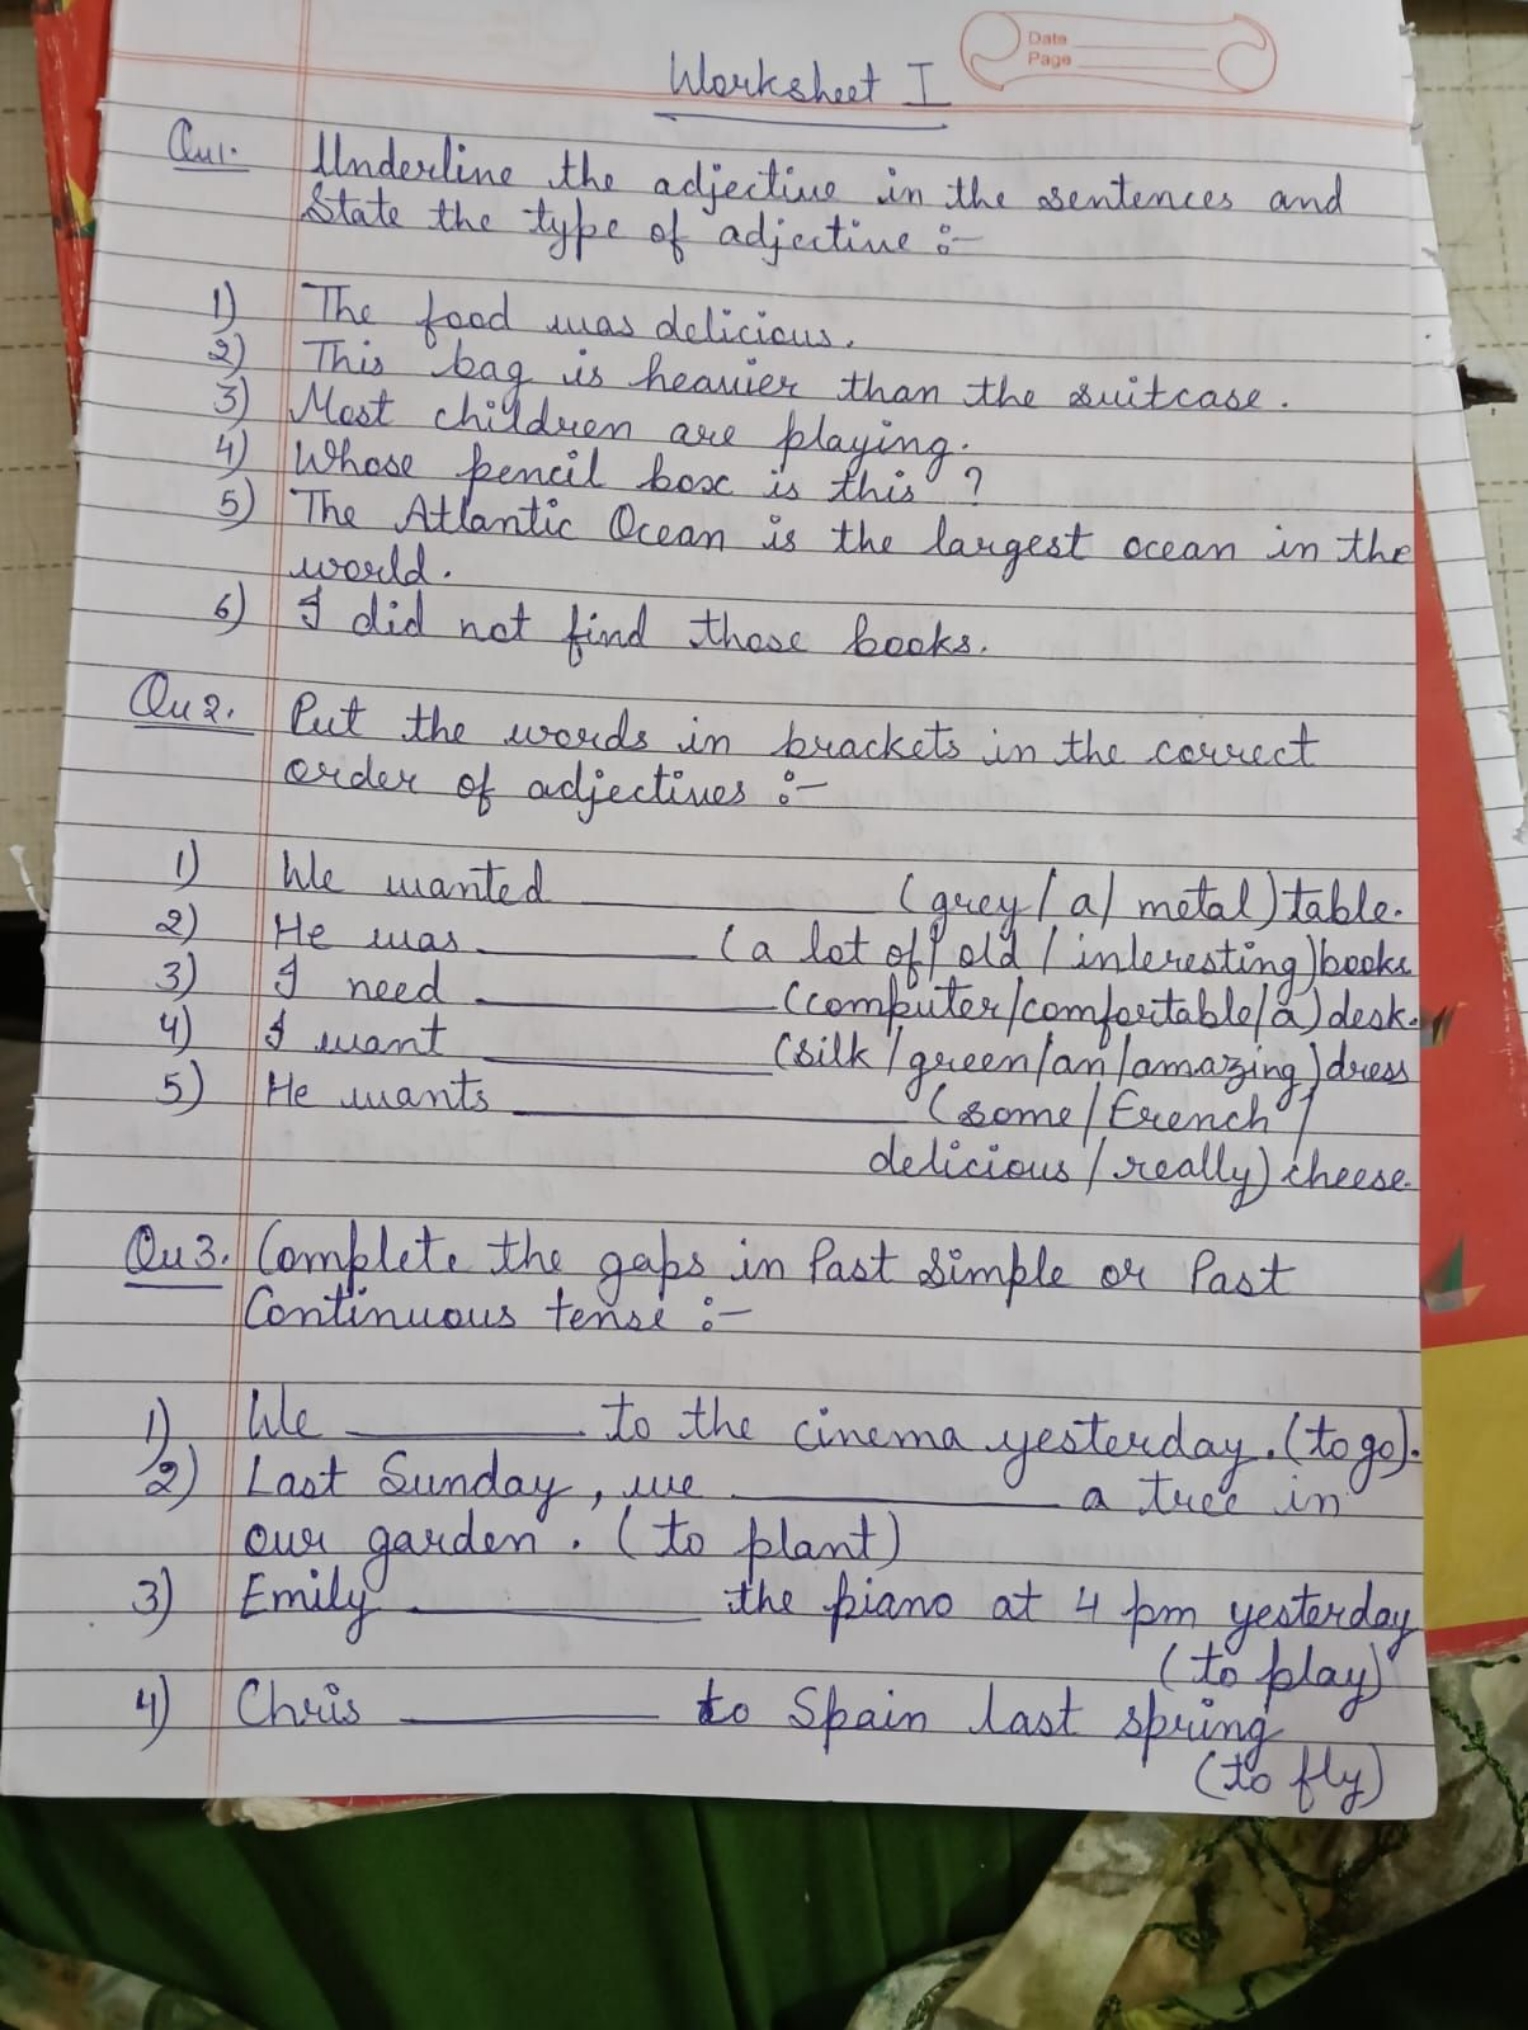 Date
Page
Worksheet I
Qu1. Underline the adjective in the sentences and
State the type of adjective :-
1) The food was delicious.
2) This bag is heavier than the suitcase.
3) Most children are playing.
4) Whose pencil box is this ?
5) The Atlantic Ocean is the largest ocean in the
world.
6) I did not find those books.
Qu2. Put the words in brackets in the correct
order of adjectives :-
1) We wanted ________ (grey / a / metal) table.
2) He was ________ (a lot of / old / interesting) books
3) I need ________ (computer/comfortable/a) desk.
4) I want ________ (silk / green/an/amazing) dress
5) He wants ________ (some / French /
delicious / really) cheese.
Qu3. Complete the gaps in Past Simple or Past
Continuous tense :-
1) We ________ to the cinema yesterday. (to go).
2) Last Sunday, we ________ a tree in
our garden. (to plant)
3) Emily ________ the piano at 4 pm yesterday
(to play)
4) Chris ________ to Spain last spring
(to fly)